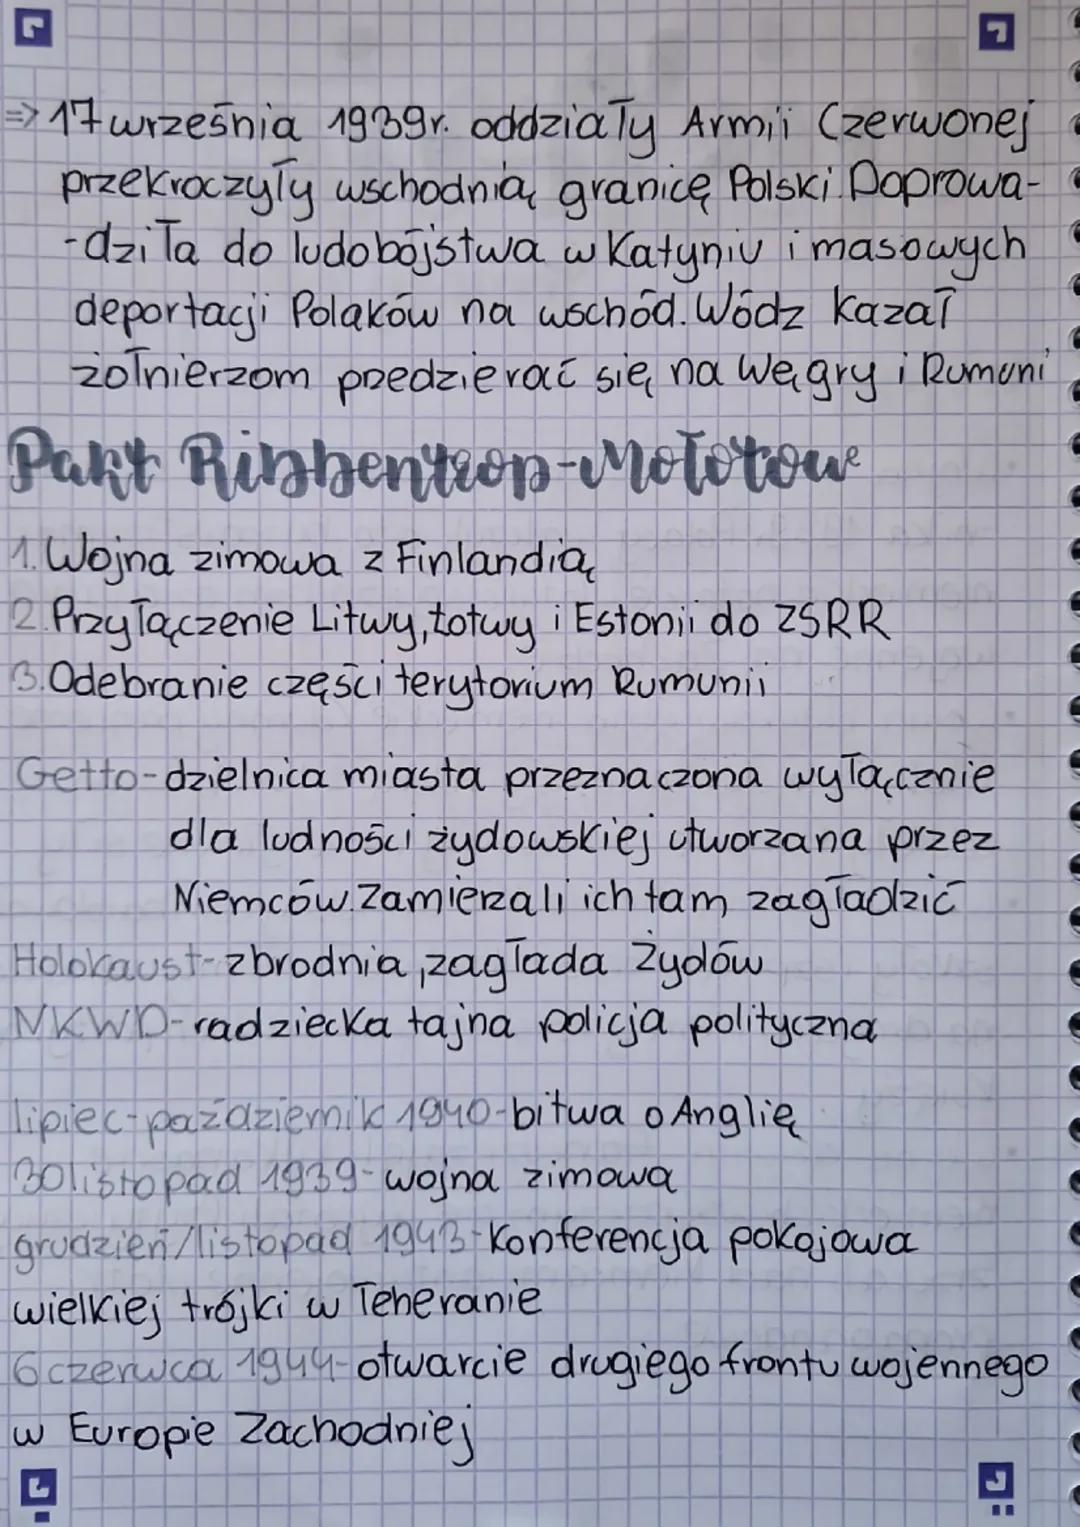 => 17 września 1939r. oddziały Armii Czerwonej
przekroczyły wschodnią granicę Polski. Doprowa-
-dziła do ludobójstwa w Katyniu i masowych
deportacji Polaków na wschód. Wódz kazał
żołnierzom przedzierać się na Węgry i Rumuni
Pakt Ribbentrop-Mołotow
1. Wojna zimowa z Finlandią
2. Przyłączenie Litwy, Łotwy i Estonii do ZSRR
3. Odebranie części terytorium Rumunii
Getto - dzielnica miasta przeznaczona wyłącznie
dla ludności żydowskiej utworzana przez
Niemców. Zamierzali ich tam zagładzić
Holokaust - zbrodnia, zagłada Żydów
NKWD - radziecka tajna policja polityczna
lipiec-październik 1940 - bitwa o Anglię
30 listopad 1939 - wojna zimowa
grudzień/listopad 1943 - Konferencja pokojowa
wielkiej trójki w Teheranie
6 czerwca 1944 - otwarcie drugiego frontu wojennego
w Europie Zachodniej